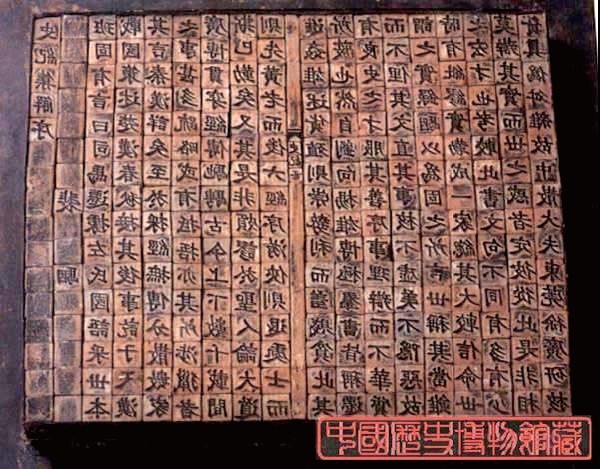 史紀集解序
裴駰
班固有言曰司馬遷據左氏國語采世本
戰國策述楚漢春秋接其後事訖于天漢
其言秦漢詳矣至於採經摭傳分散數家
之事甚多疏略或有抵捂亦其所涉獵者
廣博貫穿經傳馳騁古今上下數千載間
斯已勤矣又其是非頗謬於聖人論大道
則先黃老而後六經序游俠則退處士而
進姦雄述貨殖則崇勢利而羞賤貧此其
所蔽也然自劉向揚雄博極羣書皆稱遷
有良史之才服其善序事理辯而不華質
而不俚其文直其事核不虛美不隱惡故
謂之實錄駰以為固之所言世稱其當雖
時有紕繆實勒成一家總其大較信命世
之宏才也考較此書文句不同有多有少
莫辯其實而世之惑者定彼從此是非相
貿真偽舛雜故中散大夫東莞徐廣研核
中國歷史博物館藏